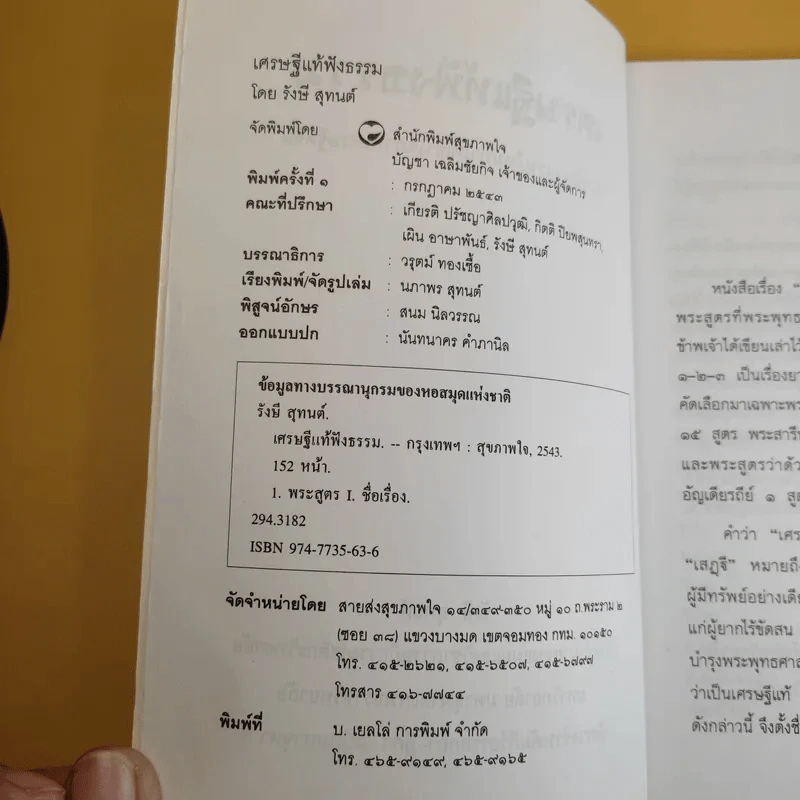 เศรษฐีแท้ฟังธรรม
โดย รังษี สุทนต์
จัดพิมพ์โดย สำนักพิมพ์สุขภาพใจ
บัญชา เฉลิมชัยกิจ เจ้าของและผู้จัดการ
พิมพ์ครั้งที่ ๑ : กรกฎาคม ๒๕๔๓
คณะที่ปรึกษา : เกียรติ ปรัชญาศิลปวุฒิ, กิตติ ปิยพสุนทรา,
เผิน อาษาพันธ์, รังษี สุทนต์
บรรณาธิการ : วรุตม์ ทองเชื้อ
เรียงพิมพ์/จัดรูปเล่ม : นภาพร สุทนต์
พิสูจน์อักษร : สนม นิลวรรณ
ออกแบบปก : นันทนาคร คำภานิล
ข้อมูลทางบรรณานุกรมของหอสมุดแห่งชาติ
รังษี สุทนต์.
เศรษฐีแท้ฟังธรรม. -- กรุงเทพฯ : สุขภาพใจ, 2543.
152 หน้า.
1. พระสูตร I. ชื่อเรื่อง.
294.3182
ISBN 974-7735-63-6
จัดจำหน่ายโดย สายส่งสุขภาพใจ ๑๔/๓๔๙-๓๕๐ หมู่ ๑๐ ถ.พระราม ๒
(ซอย ๓๘) แขวงบางมด เขตจอมทอง กทม. ๑๐๑๕๐
โทร. ๔๑๕-๒๖๒๑, ๔๑๕-๖๕๐๗, ๔๑๕-๖๗๙๗
โทรสาร ๔๑๖-๗๗๔๔
พิมพ์ที่ บ. เยลโล่ การพิมพ์ จำกัด
โทร. ๔๖๕-๙๑๔๙, ๔๖๕-๙๑๖๕
หนังสือเรื่อง "
พระสูตรที่พระพุทธ
ข้าพเจ้าได้เขียนเล่าไว้
๑-๒-๓ เป็นเรื่องยา
คัดเลือกมาเฉพาะพร
๑๕ สูตร พระสารีท
และพระสูตรว่าด้ว
อัญเดียรถีย์ ๑ สู
คำว่า "เศร
"เสฏฺฐี" หมายถึ
ผู้มีทรัพย์อย่างเดีย
แก่ผู้ยากไร้ขัดสน
บำรุงพระพุทธศา
ว่าเป็นเศรษฐีแท้
ดังกล่าวนี้ จึงตั้งชื่